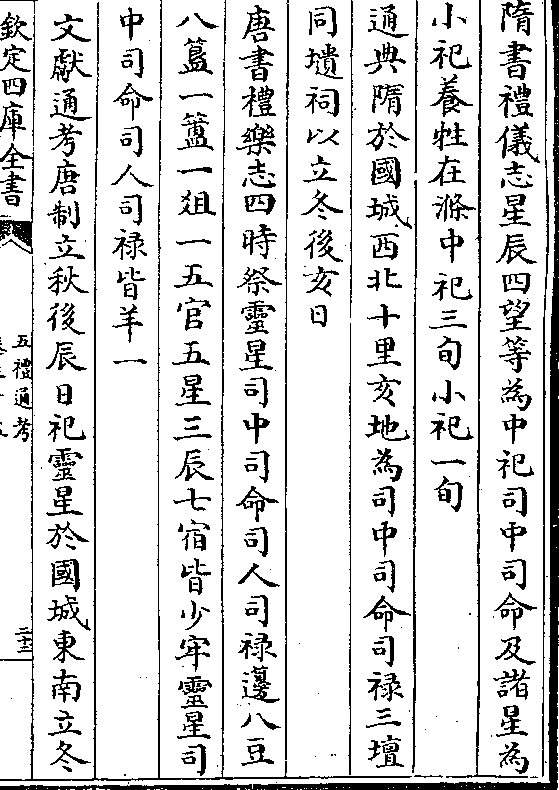 隋書禮儀志星辰四望等為中祀司中司命及諸星為
小祀養牲在滌中祀三旬小祀一旬
通典隋於國城西北十里亥地為司中司命司禄三壇
同壝祠以立冬後亥日
唐書禮樂志四時祭靈星司中司命司人司禄籩八豆
八簋一簠一俎一五官五星三辰七宿皆少牢靈星司
中司命司人司禄皆羊一
文獻通考唐制立秋後辰日祀靈星於國城東南立冬
欽定四庫全書
五禮通考